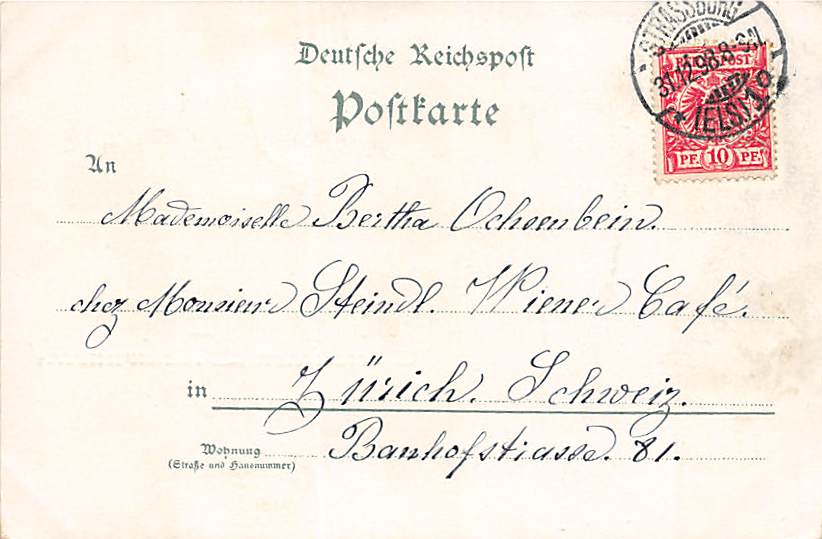 Deutsche Reichspost
Postkarte
STRASSBURG
31.12.98.8-9N
* (ELS) 1o
REICHSPOST
PF. 10 PF.
An
Mademoiselle Bertha Ochsenbein.
chez Monsieur Steindl. Wiener Café.
in Zürich. Schweiz.
Wohnung Banhofstrasse. 81.
(Straße und Hausnummer)